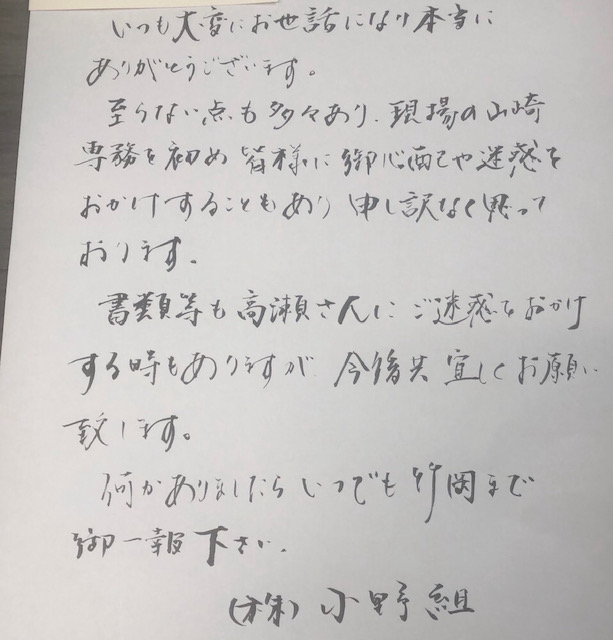 いつも大変にお世話になり本当に
ありがとうございます。
至らない点も多々あり、現場の山崎
専務を初め皆様に御心配や迷惑を
おかけすることもあり申し訳なく思って
おります。
書類等も高瀬さんにご迷惑をおかけ
する時もありますが今後共宜しくお願い
致します。
何かありましたらいつでも竹岡まで
御一報下さい。
(株)小野組